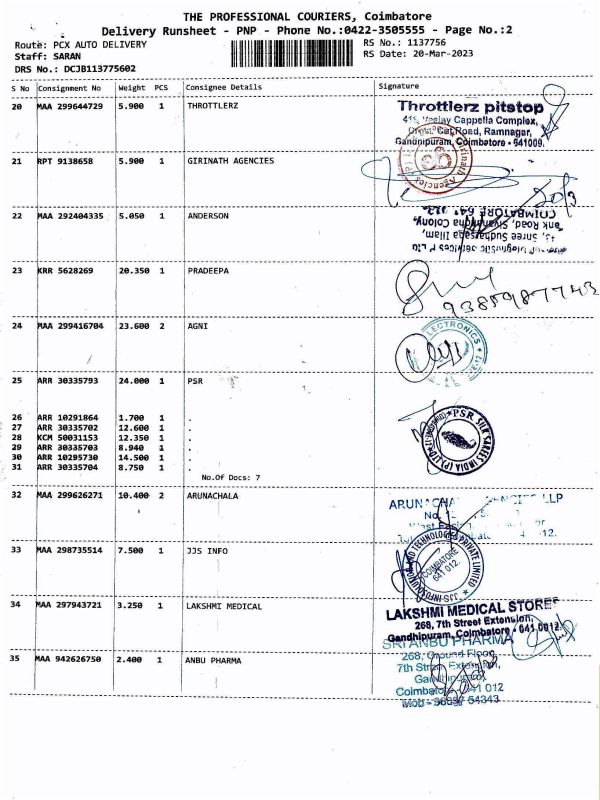 THE PROFESSIONAL COURIERS, Coimbatore
Delivery Runsheet - PNP - Phone No.:0422-3505555 - Page No.:2
Route: PCX AUTO DELIVERY RS No.: 1137756
Staff: SARAN RS Date: 20-Mar-2023
DRS No.: DCJB113775602
S No Consignment No Weight PCS Consignee Details Signature
20 MAA 299644729 5.900 1 THROTTLERZ
Throttlerz pitstop
Cappella Complex,
Road, Ramnagar,
Gandhipuram, Coimbatore - 641009.
21 RPT 9138658 5.900 1 GIRINATH AGENCIES
Agencies
20/3
22 MAA 292404335 5.050 1 ANDERSON
Diagnostic Services P Ltd
Shree
Road, Colony,
COIMBATORE 641 012.
23 KRR 5628269 20.350 1 PRADEEPA
9385987743
24 MAA 299416704 23.600 2 AGNI
ELECTRONICS
25 ARR 30335793 24.000 1 PSR
26 ARR 10291864 1.700 1 .
27 ARR 30335702 12.600 1 .
28 KCM 50031153 12.350 1 .
29 ARR 30335703 8.940 1 .
30 ARR 10295730 14.500 1 .
31 ARR 30335704 8.750 1 .
PSR SILK SAREES INDIA (P) LTD
No.Of Docs: 7
32 MAA 299626271 10.400 2 ARUNACHALA
LLP
33 MAA 298735514 7.500 1 JJS INFO
TECHNOLOGIES PRIVATE LIMITED
COIMBATORE
641 012.
34 MAA 297943721 3.250 1 LAKSHMI MEDICAL
LAKSHMI MEDICAL STORES
268, 7th Street Extension,
Gandhipuram, Coimbatore - 641 0012.
35 MAA 942626750 2.400 1 ANBU PHARMA
SRI ANBU PHARMA
268, Ground Floor,
7th Street Extension,
Gandhipuram,
Coimbatore - 641 012
Mob - 54343